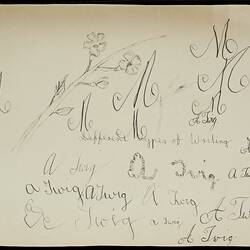 M
M M M
M M M
A Twig
Different Types of Writing
A Twig A Twig A Tw
A Twig A Twig A Twig A Twig
A Twig A Twig A Tw
A Twig